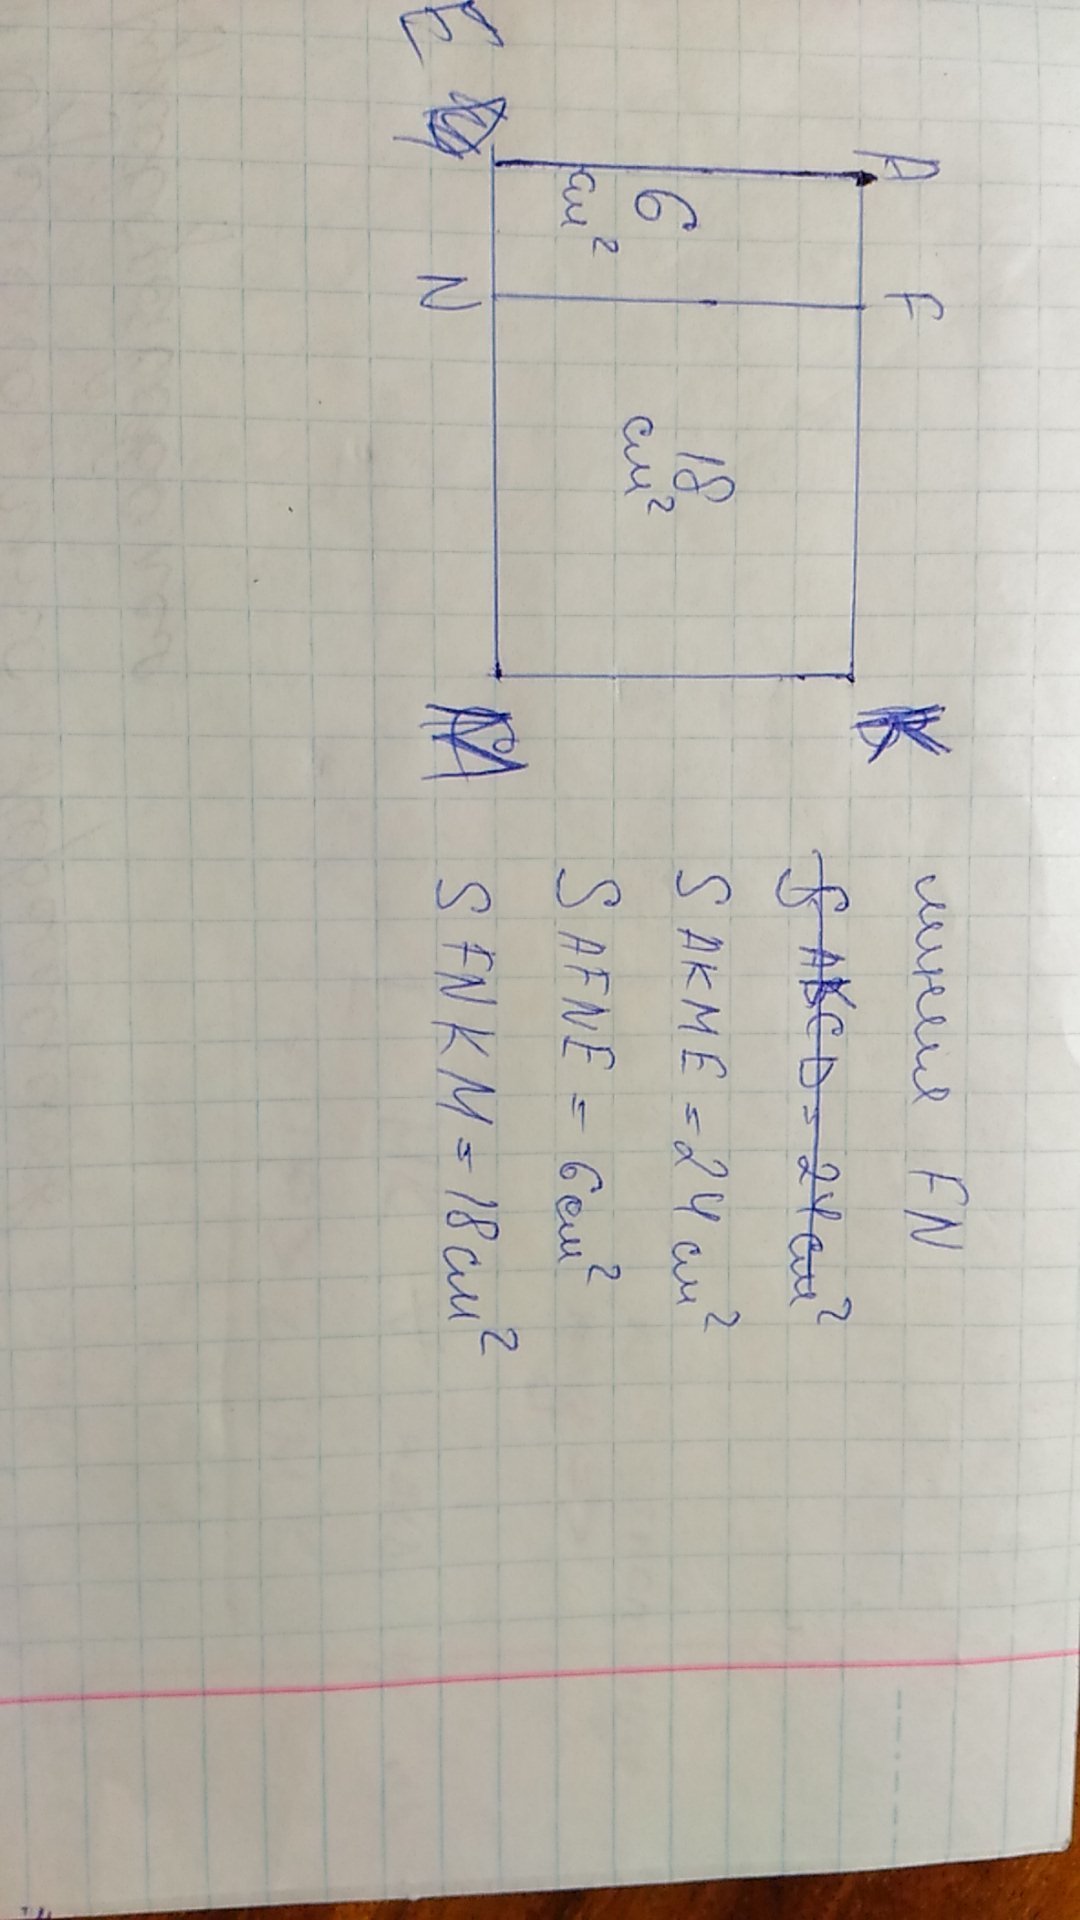 A F K
6
см²
18
см²
E N M
линия FN
S ABCD = 24 см²
S AKME = 24 см²
S AFNE = 6 см²
S FNKM = 18 см²